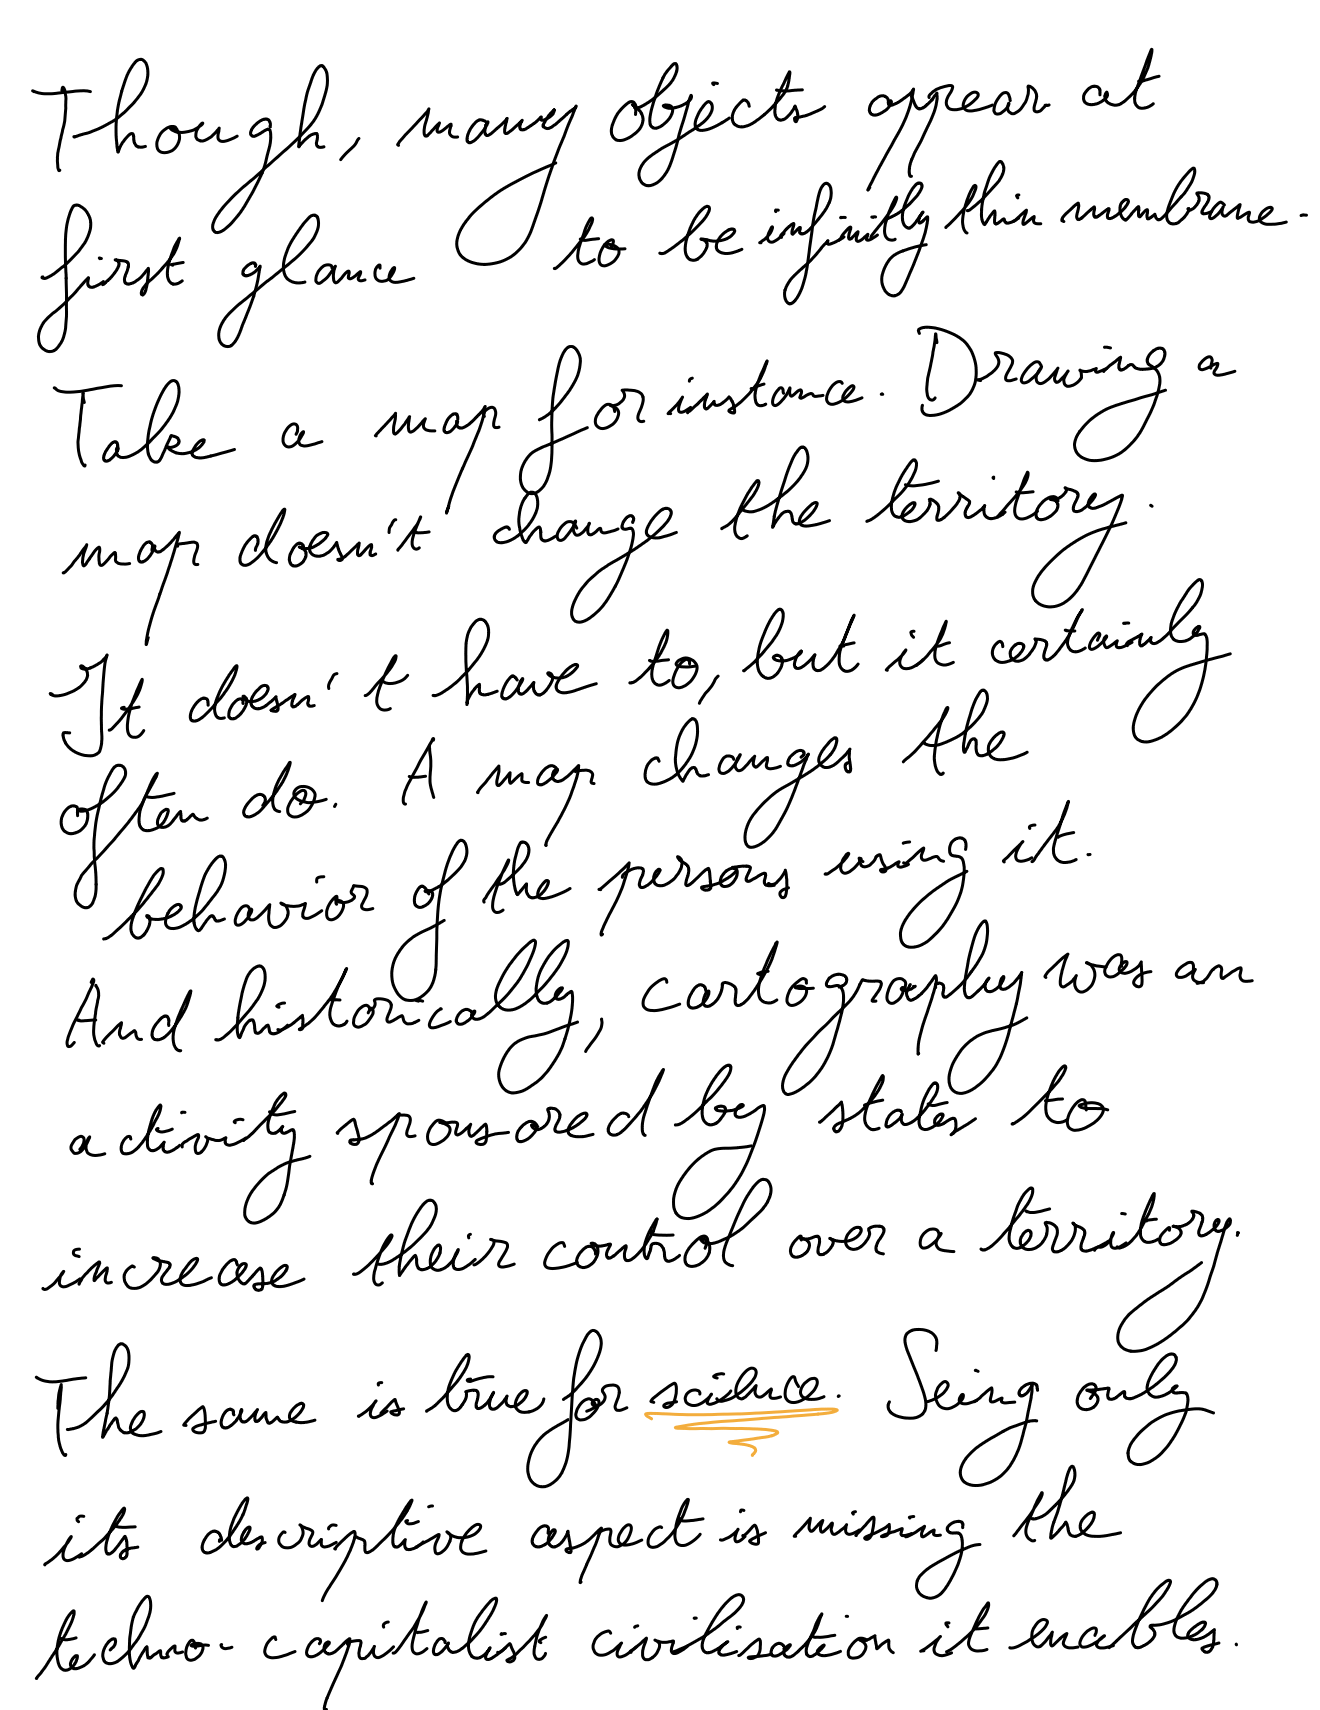 Though, many objects appear at
first glance to be infinitly thin membrane.
Take a map for instance. Drawing a
map doesn't change the territory.
It doesn't have to, but it certainly
often do. A map changes the
behavior of the persons using it.
And historically, cartography was an
activity sponsored by states to
increase their control over a territory.
The same is true for science. Seing only
its descriptive aspect is missing the
techno-capitalist civilisation it enables.